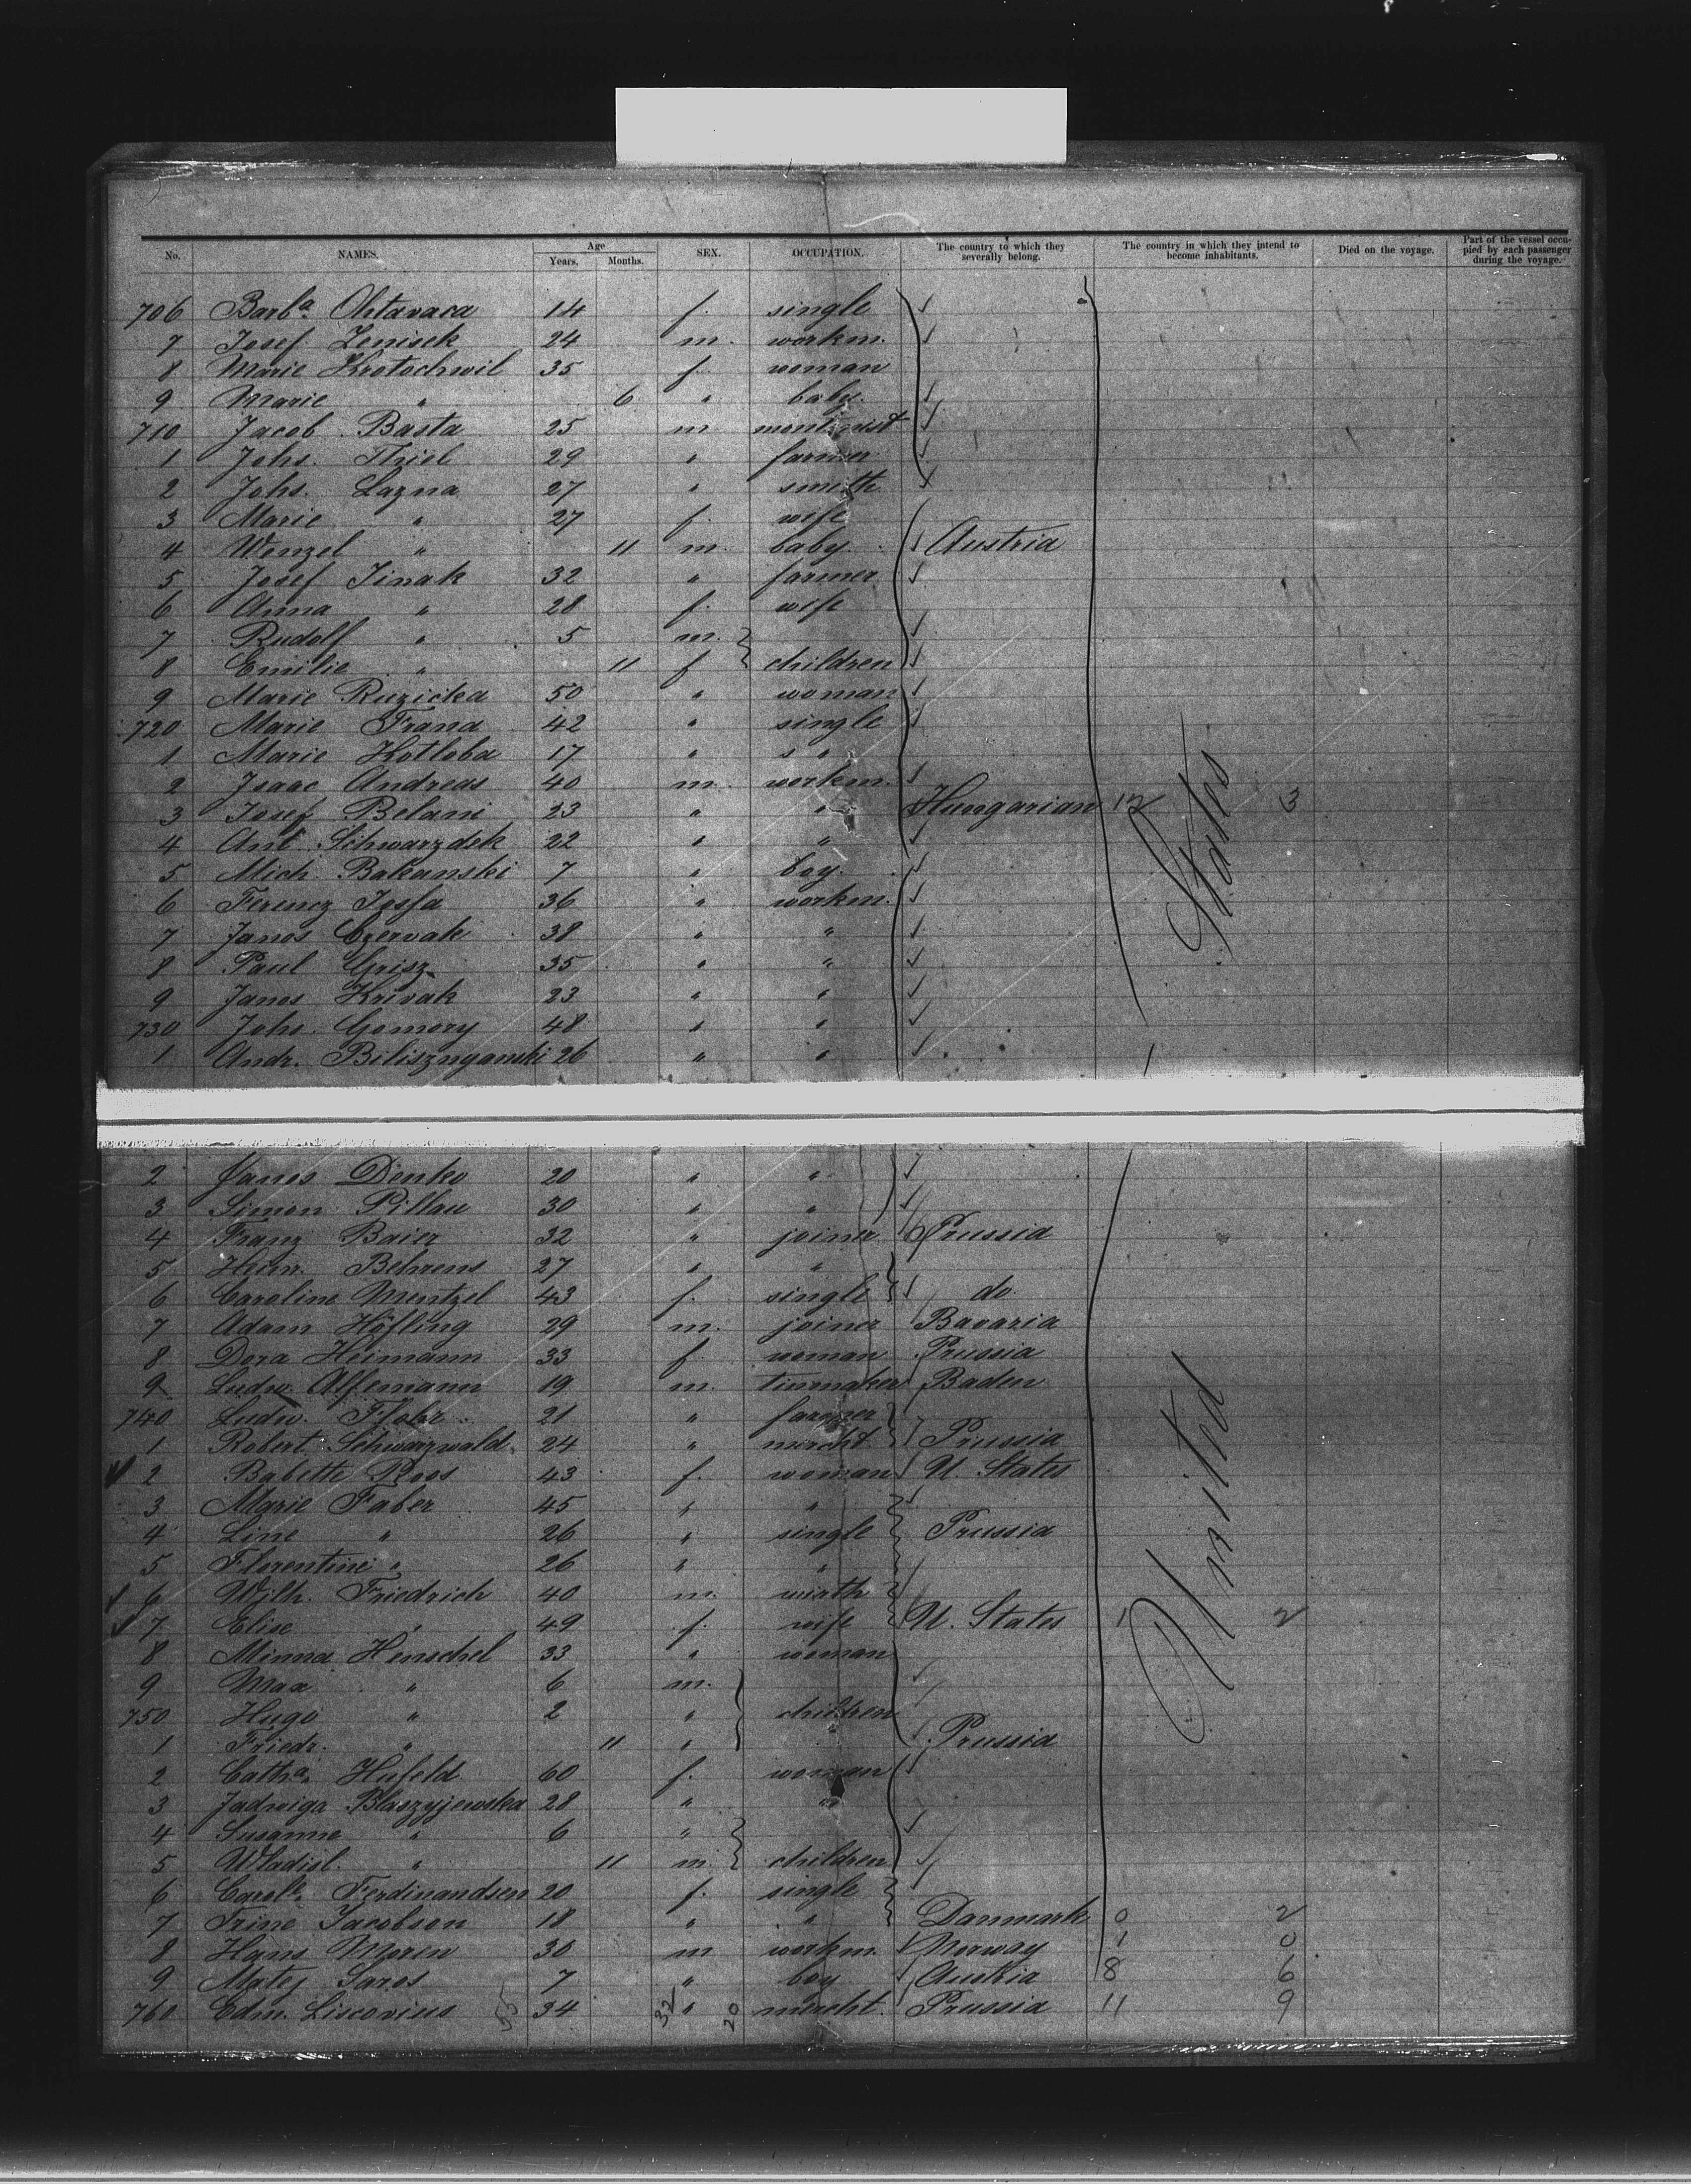 No. NAMES. Age Years. Months. SEX. OCCUPATION. The country to which they severally belong. The country in which they intend to become inhabitants. Died on the voyage. Part of the vessel occupied by each passenger during the voyage.
706 Barba Ohtavaca 14 f. single
7 Josef Zenisek 24 m. workm.
8 Marie Krotochwil 35 f. woman
9 Marie " 6 " baby
710 Jacob Basta 25 m
1 Johs. Thiel 29 " farmer
2 Johs. Lazna 27 " smith
3 Marie " 27 f. wife
4 Wenzel " 11 m. baby Austria
5 Josef Jinak 32 " farmer
6 Anna " 28 f. wife
7 Rudolf " 5 m.
8 Emilie " 11 f children
9 Marie Ruzicka 50 " woman
720 Marie Frana 42 " single
1 Marie Kotloba 17 " s "
2 Isaac Andreas 40 m. workm.
3 Josef Belani 23 " " Hungarian 12 3
4 Ant. Schwarzdek 22 " "
5 Mich. Bakanski 7 " boy
6 Ferencz Jossa 36 " workm.
7 Janos Czervak 38 " "
8 Paul Grisz 35 " "
9 Janos Krivak 23 " "
730 Johs. Gomory 48 " "
1 Andr. Bilisznyanski 26 " "
2 Janos Denko 20 " "
3 Simon Pillau 30 " "
4 Franz Baier 32 " joiner Prussia
5 Behrens 27 " "
6 Caroline Mentzel 43 f. single do.
7 Adam Höfling 29 m. joiner Bavaria
8 Dora Heimann 33 f woman Prussia
9 Ludw. Alfemann 19 m. tinmaker Baden
740 Ludw. Flohr 21 " farmer
1 Robert Schwarzwald 24 " mercht. Prussia
2 Babette Roos 43 f. woman U. States
3 Marie Faber 45 " "
4 Line " 26 " single Prussia
5 Florentine " 26 " "
6 Wilh. Friedrich 40 m. wirth
7 Elise " 49 f. wife U. States 1 2
8 Minna Henschel 33 " woman
9 Max " 6 m.
750 Hugo " 2 " children
1 Friedr. " 11 " " Prussia
2 Catha. Hufeld 60 f. woman
3 Jadwiga Blaszyjewska 28 " "
4 Susanne " 6 "
5 Wladisl. " 11 m. children
6 Carole. Ferdinandsen 20 f. single
7 Trine Jacobson 18 " " Danmark 0 2
8 Hans Moren 30 m workm. Norway 1 0
9 Matej Saros 7 " boy Austria 8 6
760 Edm. Liscovius 55 34 32 " 20 mercht. Prussia 11 9
United States